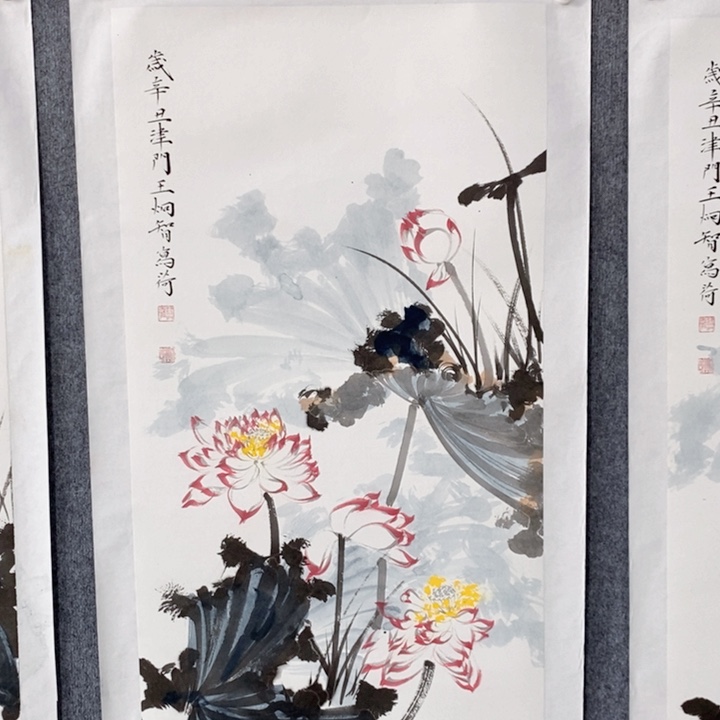 歲辛丑津門王炯智寫荷
歲辛丑津門王炯智寫荷